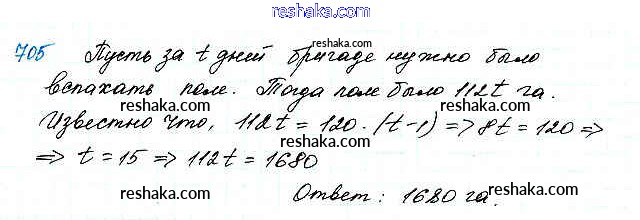 reshaka.com
705 Пусть за t дней бригаде нужно было
reshaka.com
вспахать поле. Тогда поле было 112t га.
reshaka.com reshaka.com
Известно что, 112t = 120·(t-1) => 8t = 120 =>
=> t = 15 => 112t = 1680
reshaka.com reshaka.com
Ответ: 1680 га.
reshaka.com